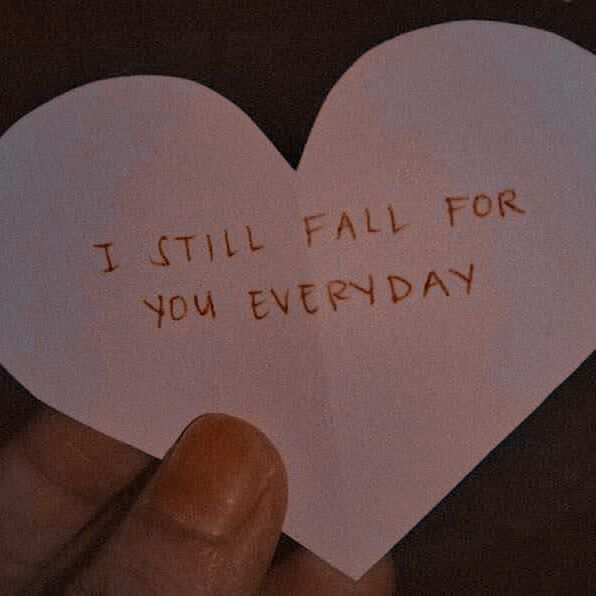 I STILL FALL FOR
YOU EVERYDAY